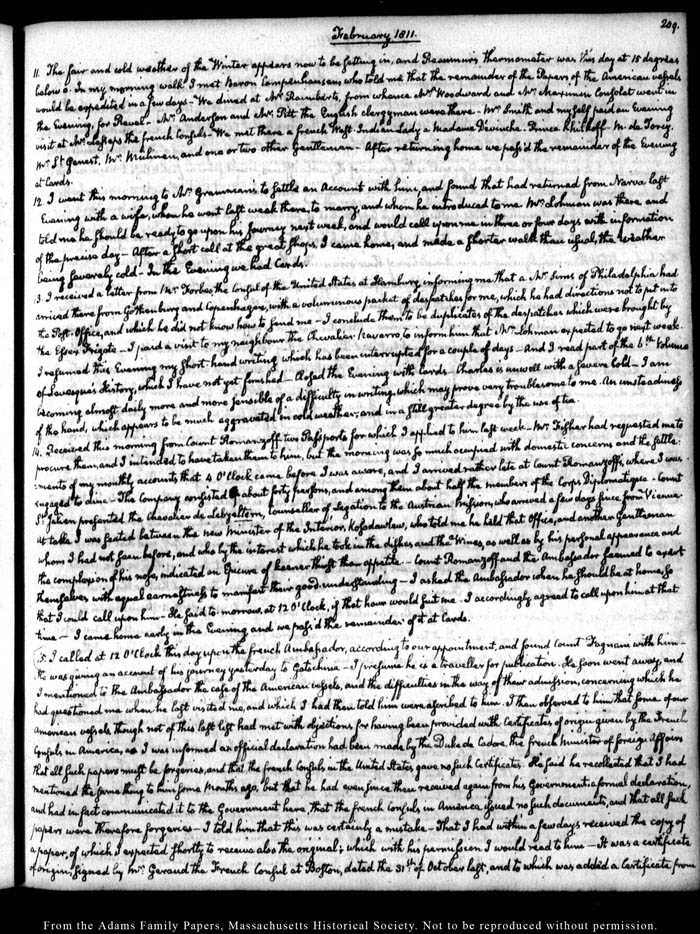 209.
February 1811.
11. The fair and cold weather of the Winter appears now to be setting in, and Reaumur's thermometer was this day at 15 degrees
below 0. In my morning walk I met Baron Campenhausen who told me that the remainder of the Papers of the American vessels
would be expedited in a few days — We dined at Mr Raimbert's, from whence Mrs Woodward and Mr Marimen Conflat went in
the Evening, for Reval — Mr Anderson and Mr Pitt the English clergyman were there. Mr Smith and myself paid an Evening
visit at Mr Lesseps the french Consul's — We met there a french West-Indian Lady a Madame Prince M. de Torcy.
Mr St Genest, Mr and one or two other Gentlemen — After returning home we pass'd the remainder of the Evening
at Cards.
12. I went this morning to Mr Gramman's to settle an Account with him, and found that had returned from Narva last
Evening with a wife, whom he went last week there, to marry, and whom he introduced to me. Mr Lohman was there and
told me he should be ready to go upon his Journey next week, and would call upon me in three or four days with information
of the precise day — After a short call at the great shops, I came home, and made a shorter walk than usual, the weather
being severely cold. In the Evening we had Cards.
3. I received a letter from Mr Forbes the Consul of the United States at Hamburg, informing me that a Mr Sims of Philadelphia had
arrived there from Gothenburg and Copenhagen, with a voluminous packet of despatches for me, which he had directions not to put into
the Post-Office, and which he did not know how to send me — I conclude them to be duplicates of the despatches which were brought by
the Essex Frigate — I paid a visit to my neighbour the Chevalier Navarro, to inform him that Mr Lohman expected to go next week.
I resumed this Evening my short hand writing which has been interrupted for a couple of days — And I read part of the 6th Volume
of Levesque's History, which I have not yet finished — Closed the Evening with Cards. Charles is unwell with a severe Cold — I am
becoming almost daily more and more sensible of a difficulty in writing, which may prove very troublesome to me. An unsteadiness
of the hand, which appears to be much aggravated in cold weather; and in a still greater degree by the use of tea.
14. Received this morning from Count Romanzoff, two Passports for which I applied to him last week — Mr Fisher had requested me to
procure them, and I intended to have taken them to him, but the morning was so much occupied with domestic concerns and the settle:
:ments of my monthly accounts that 4 O'Clock came before I was aware, and I arrived rather late at Count Romanzoff's, where I was
engaged to dine — The Company consisted of about forty persons, and among them about half the members of the Corps Diplomatique. Count
St Julien presented the Chevalier de Lebzeltern, Counsellor of Legation to the Austrian Mission, who arrived a few days since from Vienna
At table I was seated between the new Minister of the Interior, Kosodawlew, who told me he held that Office, and another Gentleman
whom I had not seen before, and who by the interest which he took in the dishes and the Wines, as well as by his personal appearance and
the complexion of his nose, indicated an Epicure of keener thirst than appetite — Count Romanzoff and the Ambassador seemed to exert
themselves with equal earnestness to manifest their good understanding — I asked the Ambassador when he should be at home, so
that I could call upon him — He said to-morrow, at 12 O'Clock, if that hour would suit me. I accordingly agreed to call upon him at that
time — I came home early in the Evening and we pass'd the remainder of it at Cards.
15. I called at 12 O'Clock this day upon the French Ambassador, according to our appointment, and found Count Fagnani with him —
He was giving an account of his journey yesterday to Gatschina — I presume he is a traveller for publication. He soon went away, and
I mentioned to the Ambassador the case of the American vessels, and the difficulties in the way of their admission, concerning which he
had questioned me when he last visited me, and which I had then told him were ascribed to him. I then observed to him that some of our
American vessels, though not of this last list had met with objections for having been provided with Certificates of origin given by the French
Consuls in America, as I was informed an official declaration had been made by the Duke de Cadore, the french Minister of foreign Affairs
that all such papers must be forgeries, and that the french Consuls in the United States gave no such Certificates. He said he recollected that I had
mentioned the same thing to him some Months ago, but that he had even since then received again from his Government a formal declaration,
and had in fact communicated it to the Government here, that the french Consuls in America issued no such documents, and that all such
papers were therefore forgeries — I told him that this was certainly a mistake — That I had within a few days received the copy of
a paper, of which I expected shortly to receive also the original; which with his permission I would read to him — It was a certificate
of origin, signed by Mr Geraud the French Consul at Boston, dated the 31st of October last, and to which was added a Certificate from
From the Adams Family Papers, Massachusetts Historical Society. Not to be reproduced without permission.